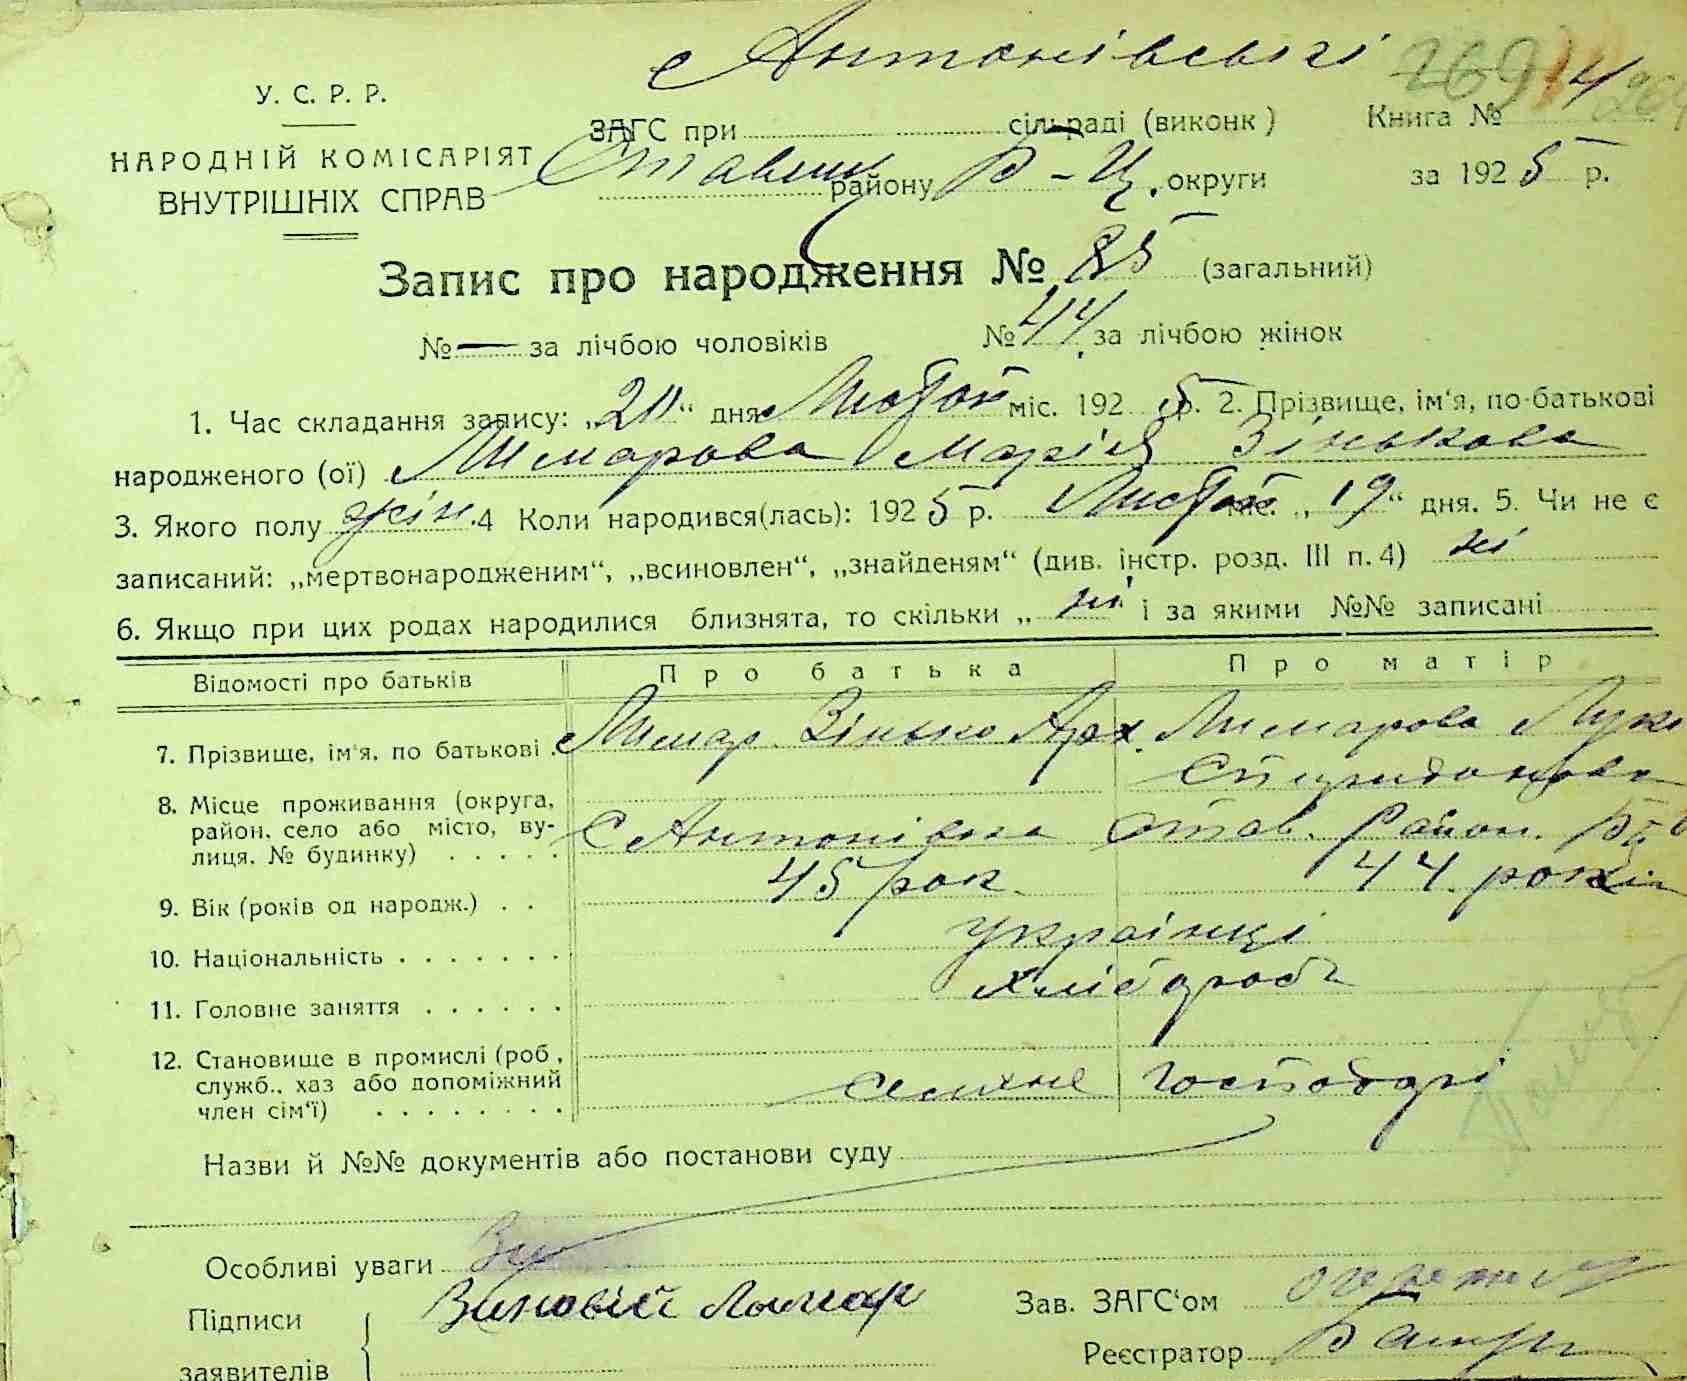 с Антонівській
У. С. Р. Р.
ЗАГС при сільраді (виконк) Книга №
НАРОДНІЙ КОМІСАРІЯТ
ВНУТРІШНІХ СПРАВ
Ставищ району Б-Ц. округи за 1925 р.
Запис про народження № 85 (загальний)
№ — за лічбою чоловіків № 44 за лічбою жінок
1. Час складання запису: „20“ дня Листоп міс. 1925. 2. Прізвище, ім‘я, по-батькові
народженого (ої) Лимарова Марія Зінькова
3. Якого полу жін. 4 Коли народився(лась): 1925 р. Листоп міс. „19“ дня. 5. Чи не є
записаний: „мертвонародженим“, „всиновлен“, „знайденям“ (див. інстр. розд. III п. 4) ні
6. Якщо при цих родах народилися близнята, то скільки „ ні “ і за якими №№ записані
Відомості про батьків Про батька Про матір
7. Прізвище, ім‘я, по батькові . Лимар Зінько Арх. Лимарова Лук
Спиридонова
8. Місце проживання (округа,
район, село або місто, ву-
лиця, № будинку) . . . . . с Антонівка Став. Район.
9. Вік (років од народж.) . . 45 рок. 44 років
10. Національність . . . . . . . українці
11. Головне заняття . . . . . . хлібороби
12. Становище в промислі (роб.,
служб., хаз або допоміжний
член сім‘ї) . . . . . . . . господарі
Назви й №№ документів або постанови суду
Особливі уваги
Підписи
заявителів
Зиновій Лимар
Зав. ЗАГС‘ом
Реєстратор